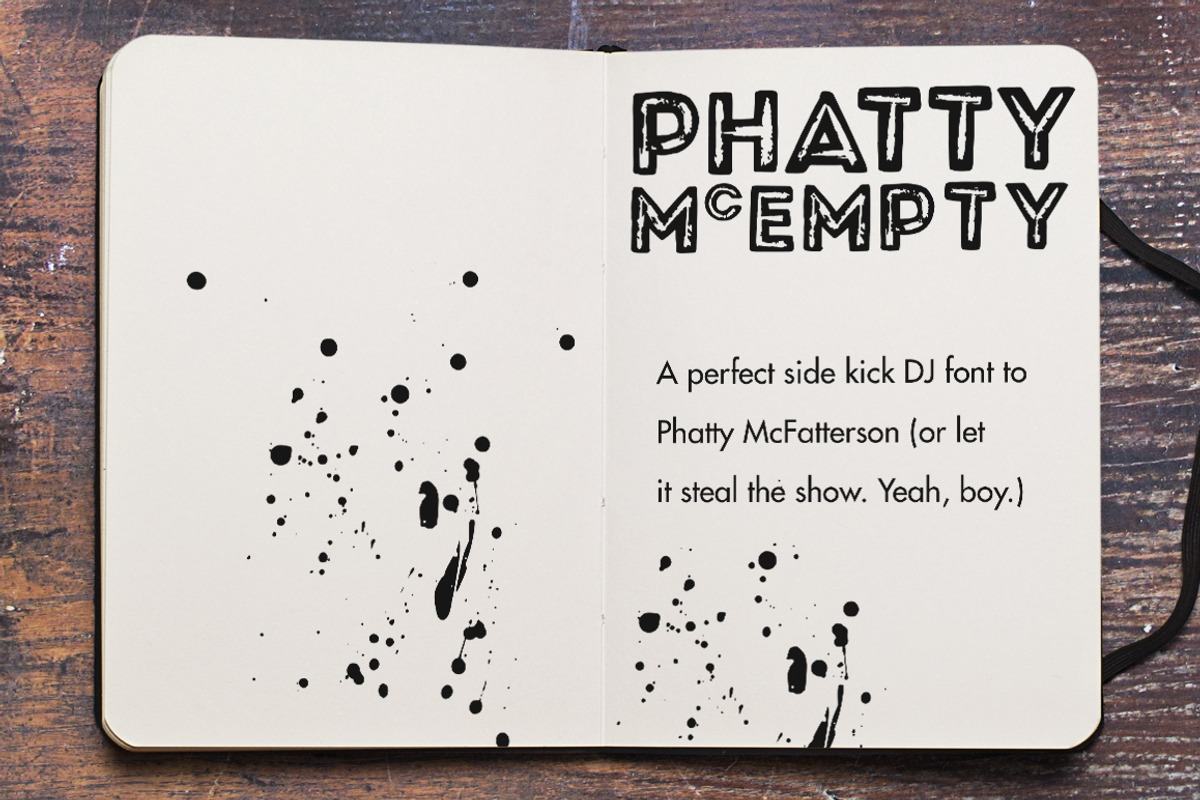 PHATTY
McEMPTY
A perfect side kick DJ font to
Phatty McFatterson (or let
it steal the show. Yeah, boy.)